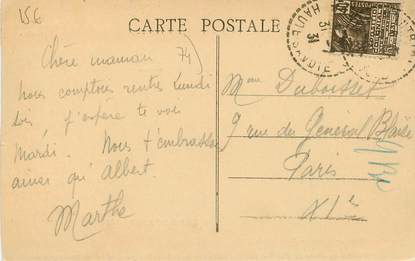 15€
CARTE POSTALE
74
31
HAUTE-SAVOIE
Chère maman
nous comptons rentrer lundi
soir j'espère te voir
mardi. Nous t'embrassons
ainsi qu'Albert.
Marthe
Mme Duboisset
9 rue du Général Blaise
Paris
XIe